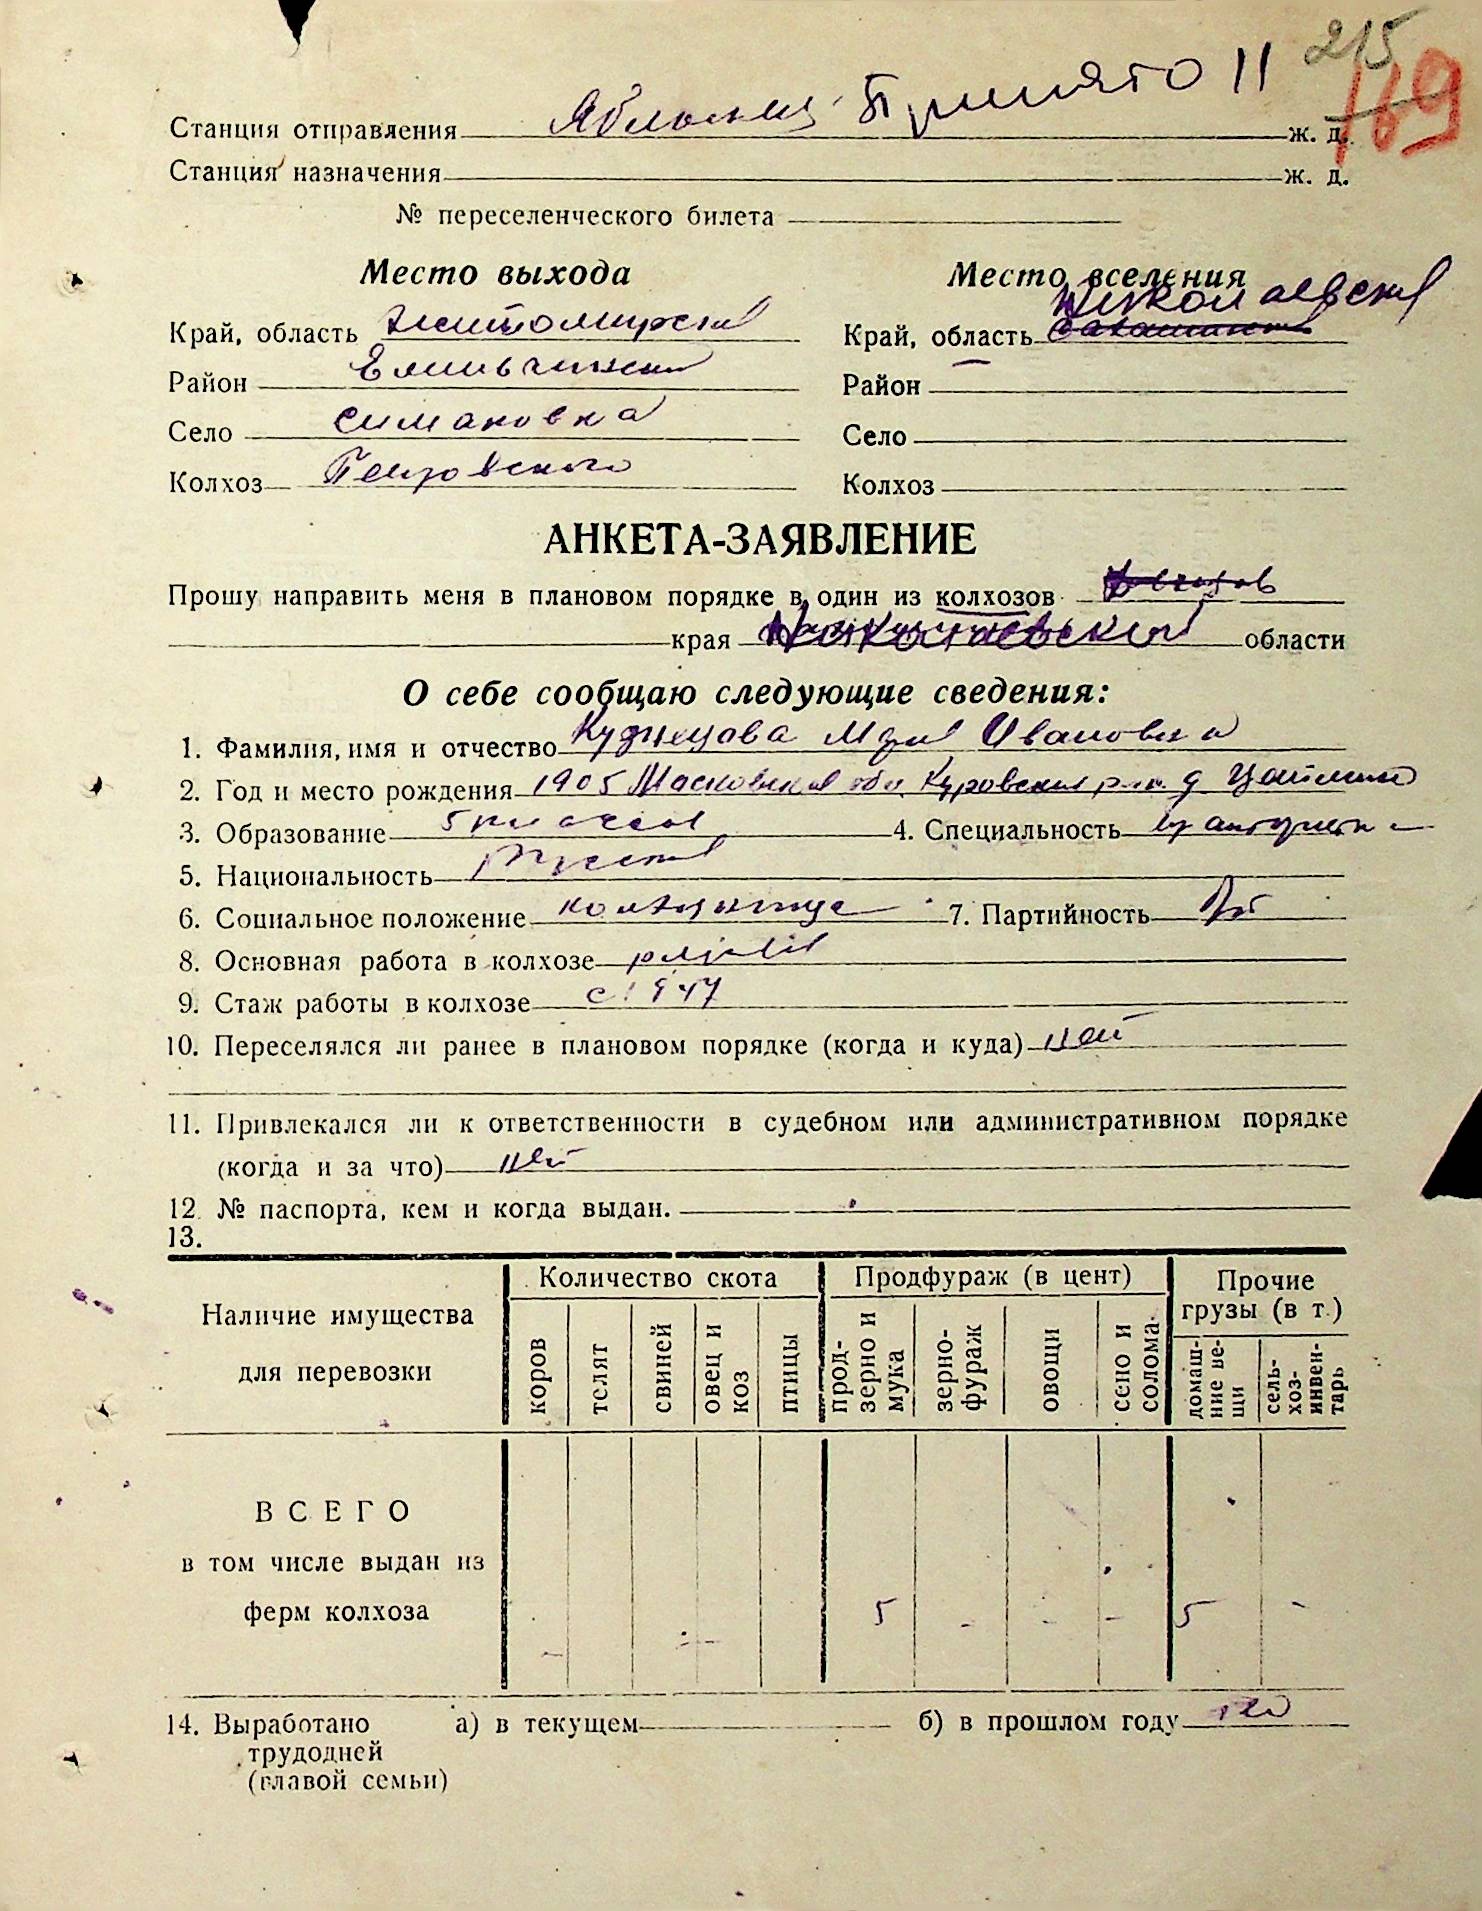 215
169
Станция отправления Яблонец Принято 11 ж. д.
Станция назначения ж. д.
№ переселенческого билета
Место выхода Место вселения
Край, область Житомирская Край, область Николаевская
Район Емильчинский Район
Село Симановка Село
Колхоз Петровского Колхоз
АНКЕТА-ЗАЯВЛЕНИЕ
Прошу направить меня в плановом порядке в один из колхозов
края Николаевской области
О себе сообщаю следующие сведения:
1. Фамилия, имя и отчество Кузнецова Мария Ивановна
2. Год и место рождения 1905 Московская обл. Куровский р-н. д
3. Образование 5 классов 4. Специальность
5. Национальность Русская
6. Социальное положение колхозница 7. Партийность б/п
8. Основная работа в колхозе рядовая
9. Стаж работы в колхозе с 1947
10. Переселялся ли ранее в плановом порядке (когда и куда) нет
11. Привлекался ли к ответственности в судебном или административном порядке
(когда и за что) нет
12. № паспорта, кем и когда выдан.
13.
Наличие имущества для перевозки
Количество скота
Продфураж (в цент)
Прочие грузы (в т.)
коров
телят
свиней
овец и коз
птицы
прод-зерно и мука
зерно-фураж
овощи
сено и солома
домаш-ние ве-щи
сель-хоз-инвен-тарь
ВСЕГО
в том числе выдан из
ферм колхоза 5 - - - 5 -
14. Выработано а) в текущем б) в прошлом году
трудодней
(главой семьи)